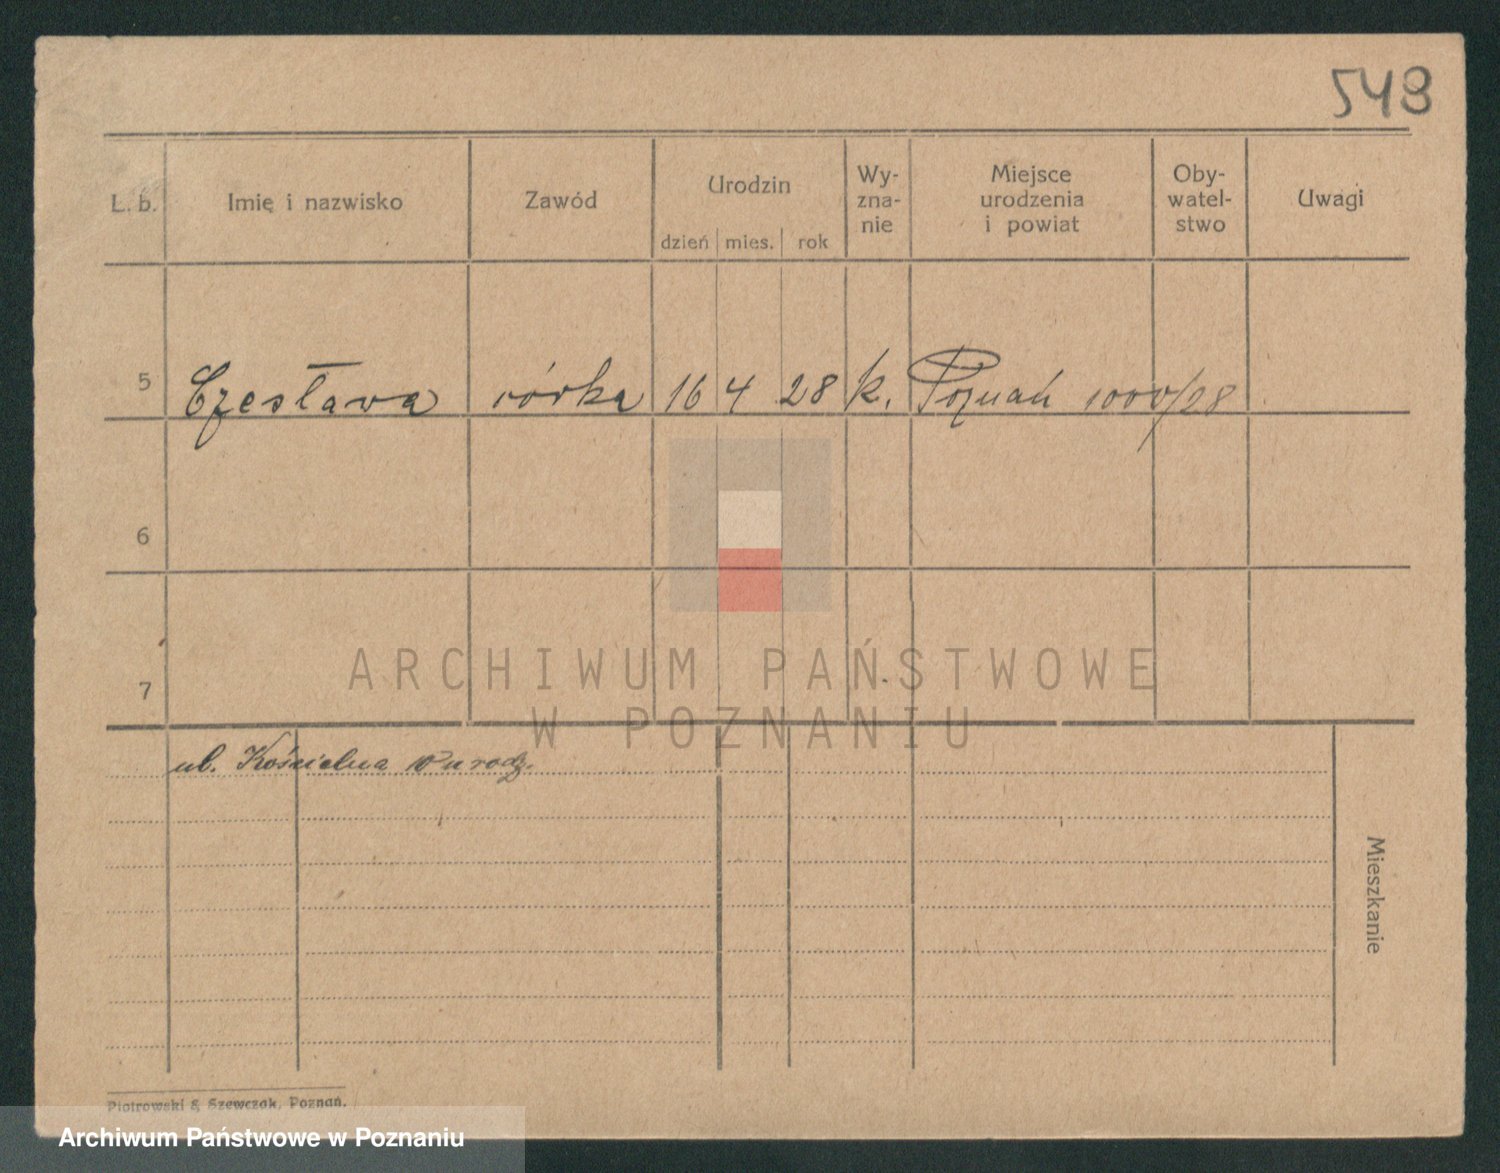 548
L. b. Imię i nazwisko Zawód Urodzin Wy-zna-nie Miejsce urodzenia i powiat Oby-watel-stwo Uwagi
dzień mies. rok
5 Czesława córka 16 4 28 k. Poznań 1000/28
6
7
ARCHIWUM PAŃSTWOWE
W POZNANIU
ul. Kościelna urodz.
Mieszkanie
Piotrowski & Szewczak, Poznań.
Archiwum Państwowe w Poznaniu